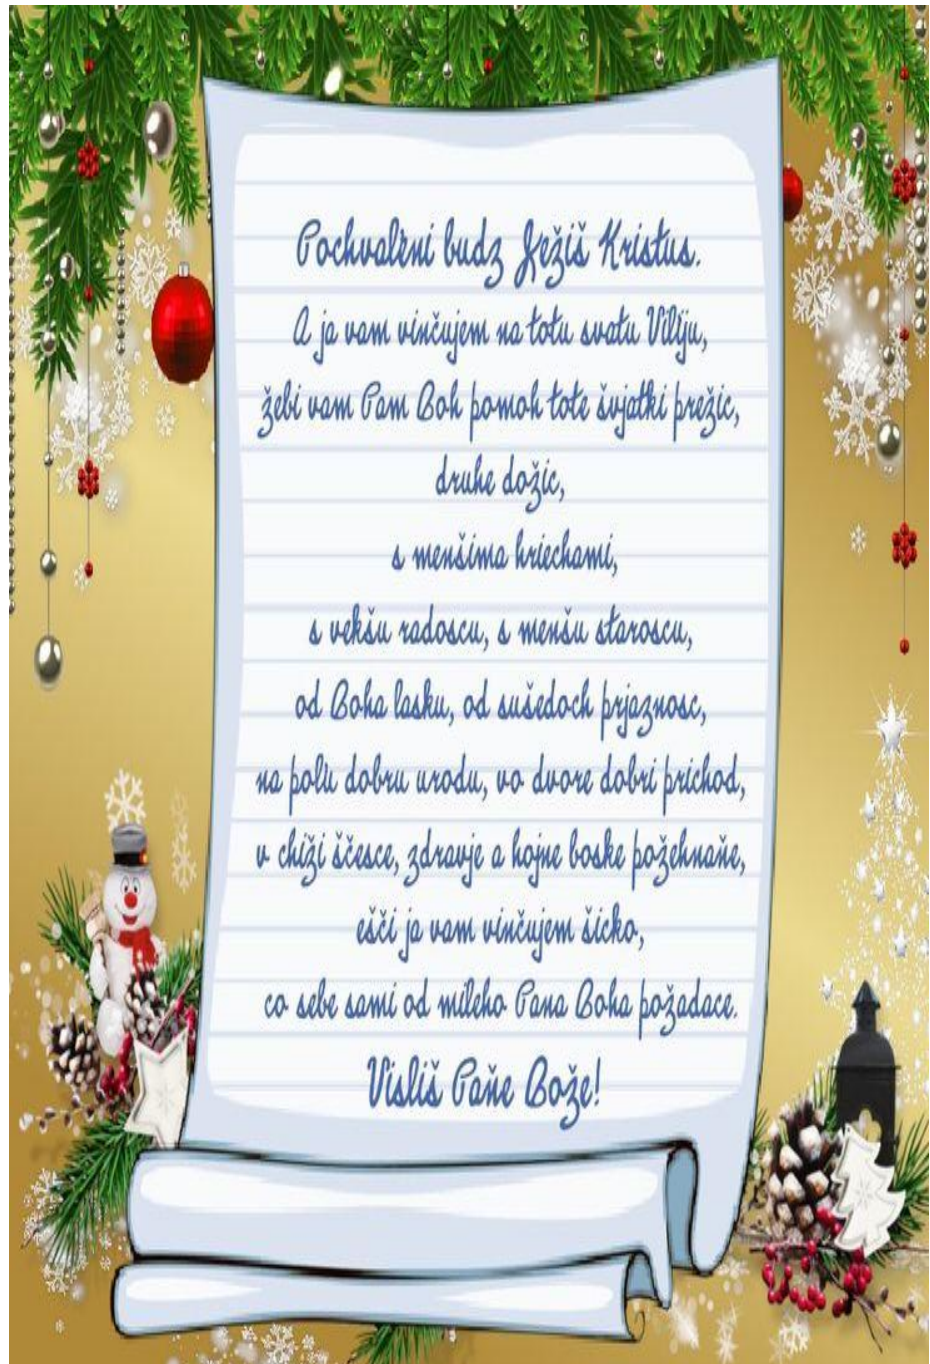 Pochvaľeni budz Ježiš Kristus.
A ja vam vinčujem na totu svatu Viliju,
žebi vam Pam Boh pomoh tote švjatki prežic,
druhe dožic,
s menšima hriechami,
s vekšu radoscu, s menšu staroscu,
od Boha lasku, od sušedoch prjaznosc,
na poľu dobru urodu, vo dvore dobri prichod,
v chiži ščesce, zdravje a hojne boske požehnaňe,
ešči ja vam vinčujem šicko,
co sebe sami od mileho Pana Boha požadace.
Visliš Paňe Bože!